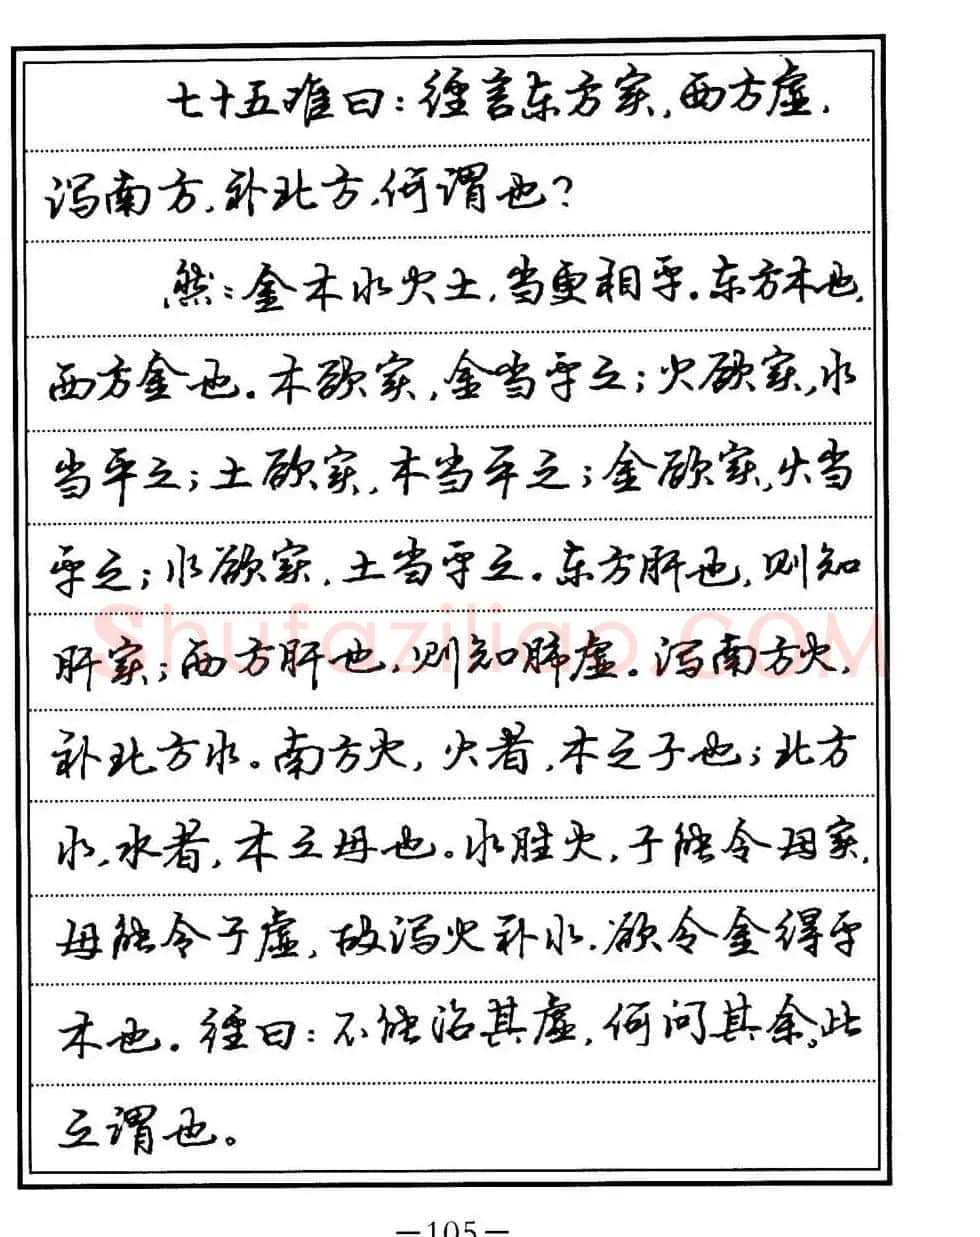 七十五难曰：经言东方实，西方虚，
泻南方，补北方，何谓也？
然：金木水火土，当更相平。东方木也，
西方金也。木欲实，金当平之；火欲实，水
当平之；土欲实，木当平之；金欲实，火当
平之；水欲实，土当平之。东方肝也，则知
肝实；西方肝也，则知肺虚。泻南方火，
补北方水。南方火，火者，木之子也；北方
水，水者，木之母也。水胜火，子能令母实，
母能令子虚，故泻火补水，欲令金得平
木也。经曰：不能治其虚，何问其余。此
之谓也。
Shufaziliao.COM
—105—